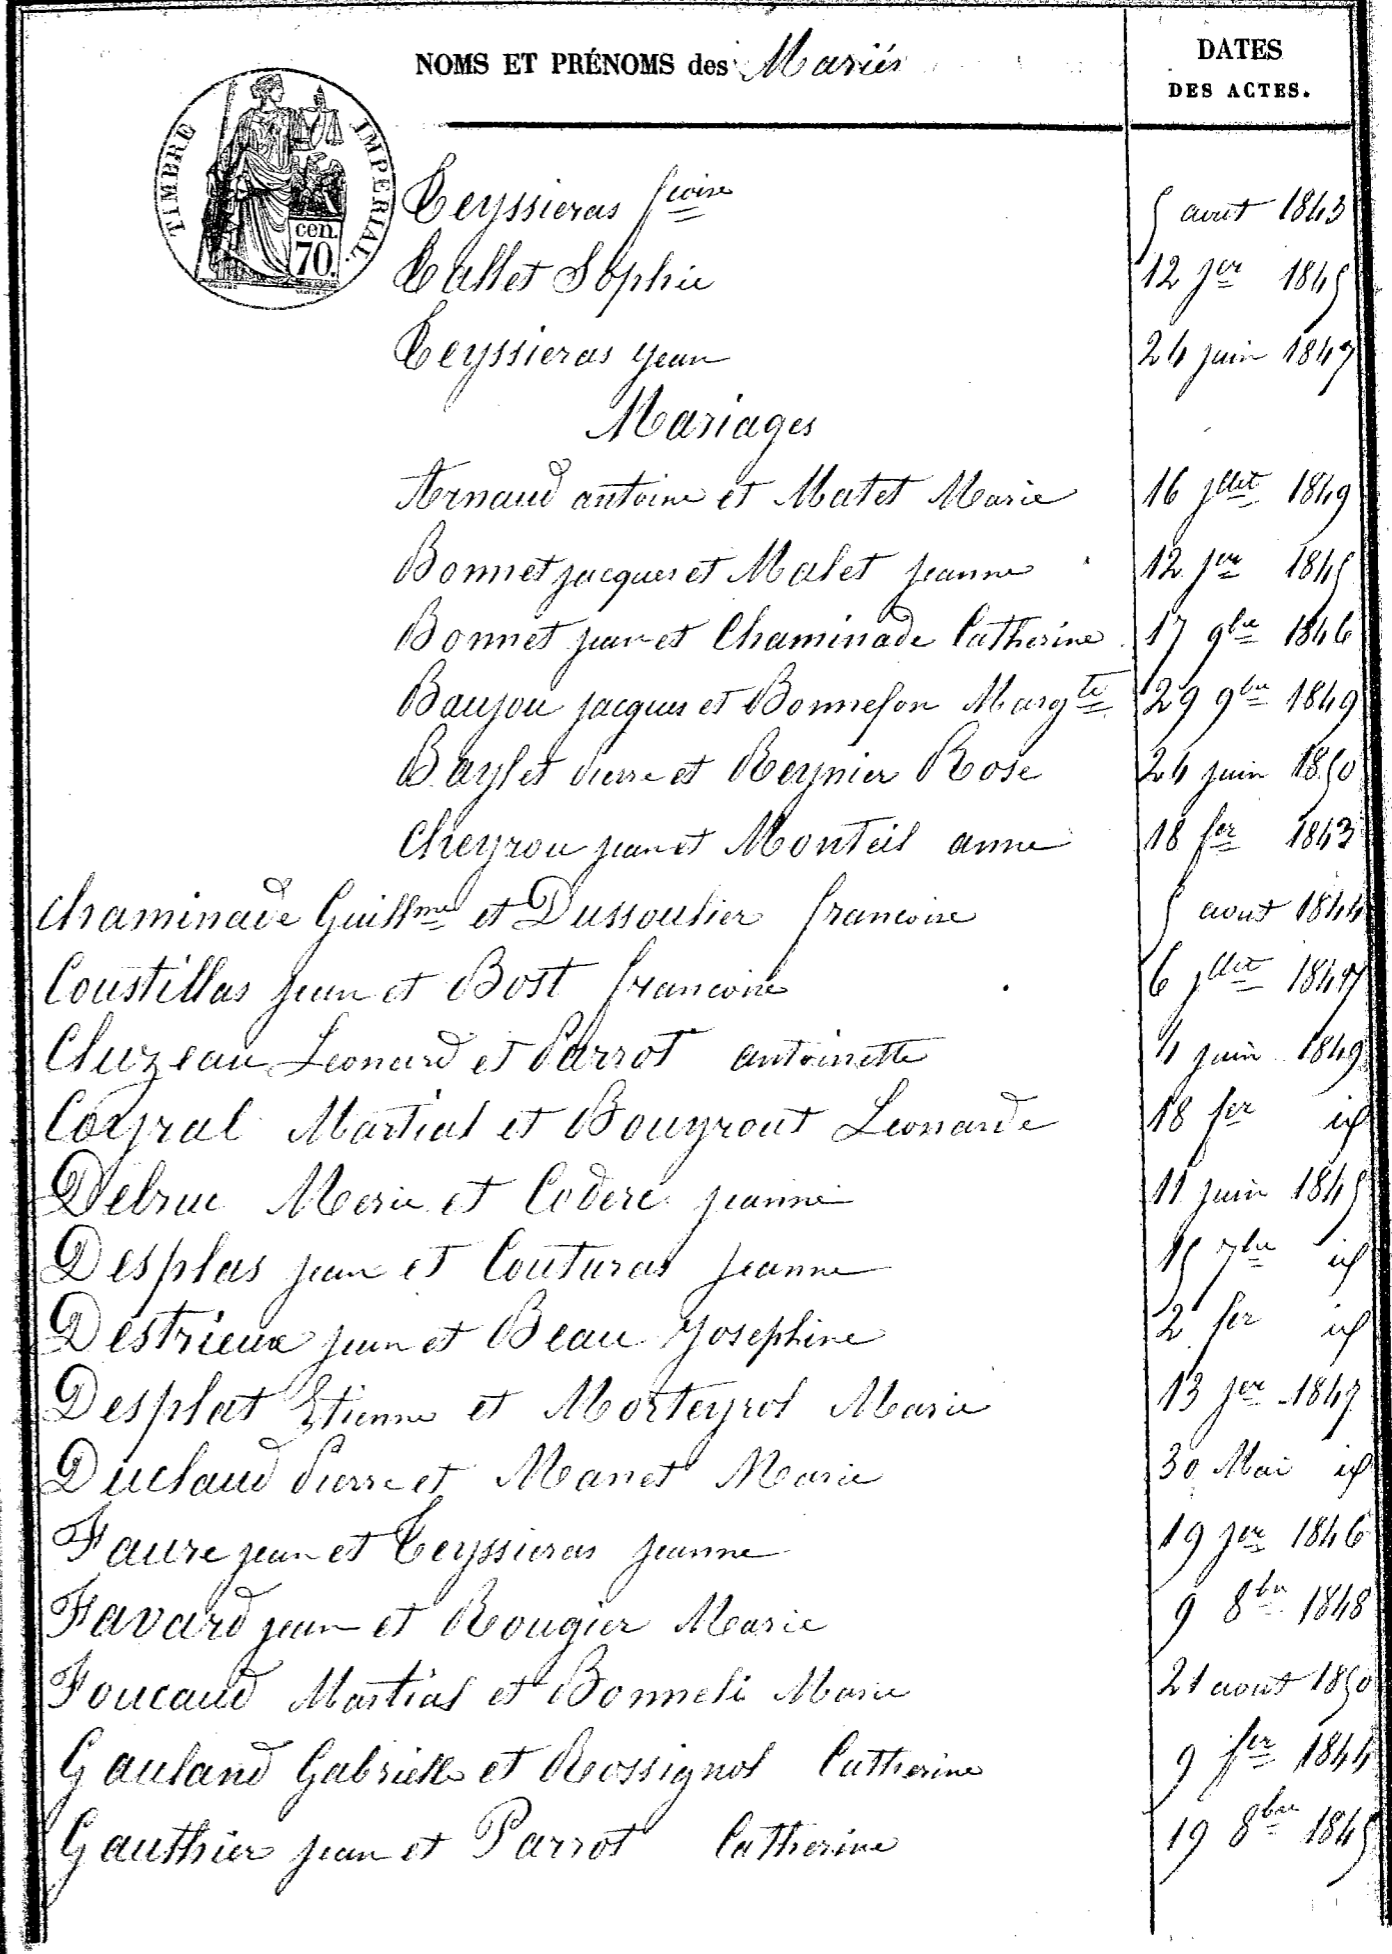 NOMS ET PRÉNOMS des Mariés
DATES
DES ACTES.
TIMBRE IMPERIAL.
cen.
70.
Teyssieras fcoise 5 aout 1843
Tallet Sophie 12 jer 1845
Teyssieras jean 24 juin 1847
Mariages
Arnaud antoine et Matet Marie 16 jllet 1849
Bonnet jacques et Malet jeanne 12 jer 1845
Bonnet jean et Chaminade Catherine 17 9bre 1846
Baujou jacques et Bonnefon Margte 29 9bre 1849
Baylet Pierre et Reynier Rose 24 juin 1850
Cheyrou jean et Monteil anne 18 fer 1843
Chaminade Guillme et Dussoulier francoise 5 aout 1844
Coustillas jean et Bost francoise 6 jllet 1847
Cluzeau Leonard et Parrot antoinette 4 juin 1849
Coyral Martial et Bouyrout Leonarde 18 fer id
Delruc Merie et Codere jeanne 11 juin 1845
Desplas jean et Couturas jeanne 15 7bre id
Destrieux jean et Beau Josephine 2 fer id
Desplat Etienne et Morteyrol Marie 13 jer 1847
Duclaud Pierre et Manet Marie 30 Mai id
Faure jean et Teyssieras jeanne 19 jer 1846
Favard jean et Rougier Marie 9 8bre 1848
Foucaud Martial et Bonneli Marie 21 aout 1850
Gauland Gabrielle et Rossignol Catherine 9 fer 1844
Gauthier jean et Parrot Catherine 19 8bre 1845